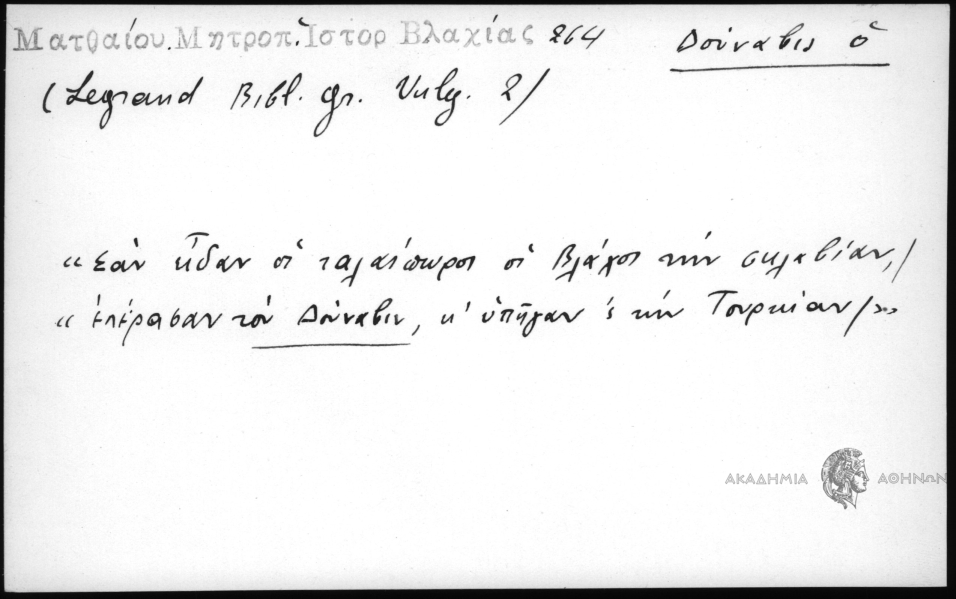 Ματθαίου.Μητροπ.Ἱστορ Βλαχίας 264 Δούναβις ὁ
(Legrand Bibl. gr. Vulg. 2)
“Σὰν εἶδαν οἱ ταλαίπωροι οἱ Βλάχοι τὴν σκλαβίαν,/
“ ἐπέρασαν τὸν Δούναβιν, κ' ὑπῆγαν 's τὴν Τουρκίαν/»
ΑΚΑΔΗΜΙΑ ΑΘΗΝΩΝ